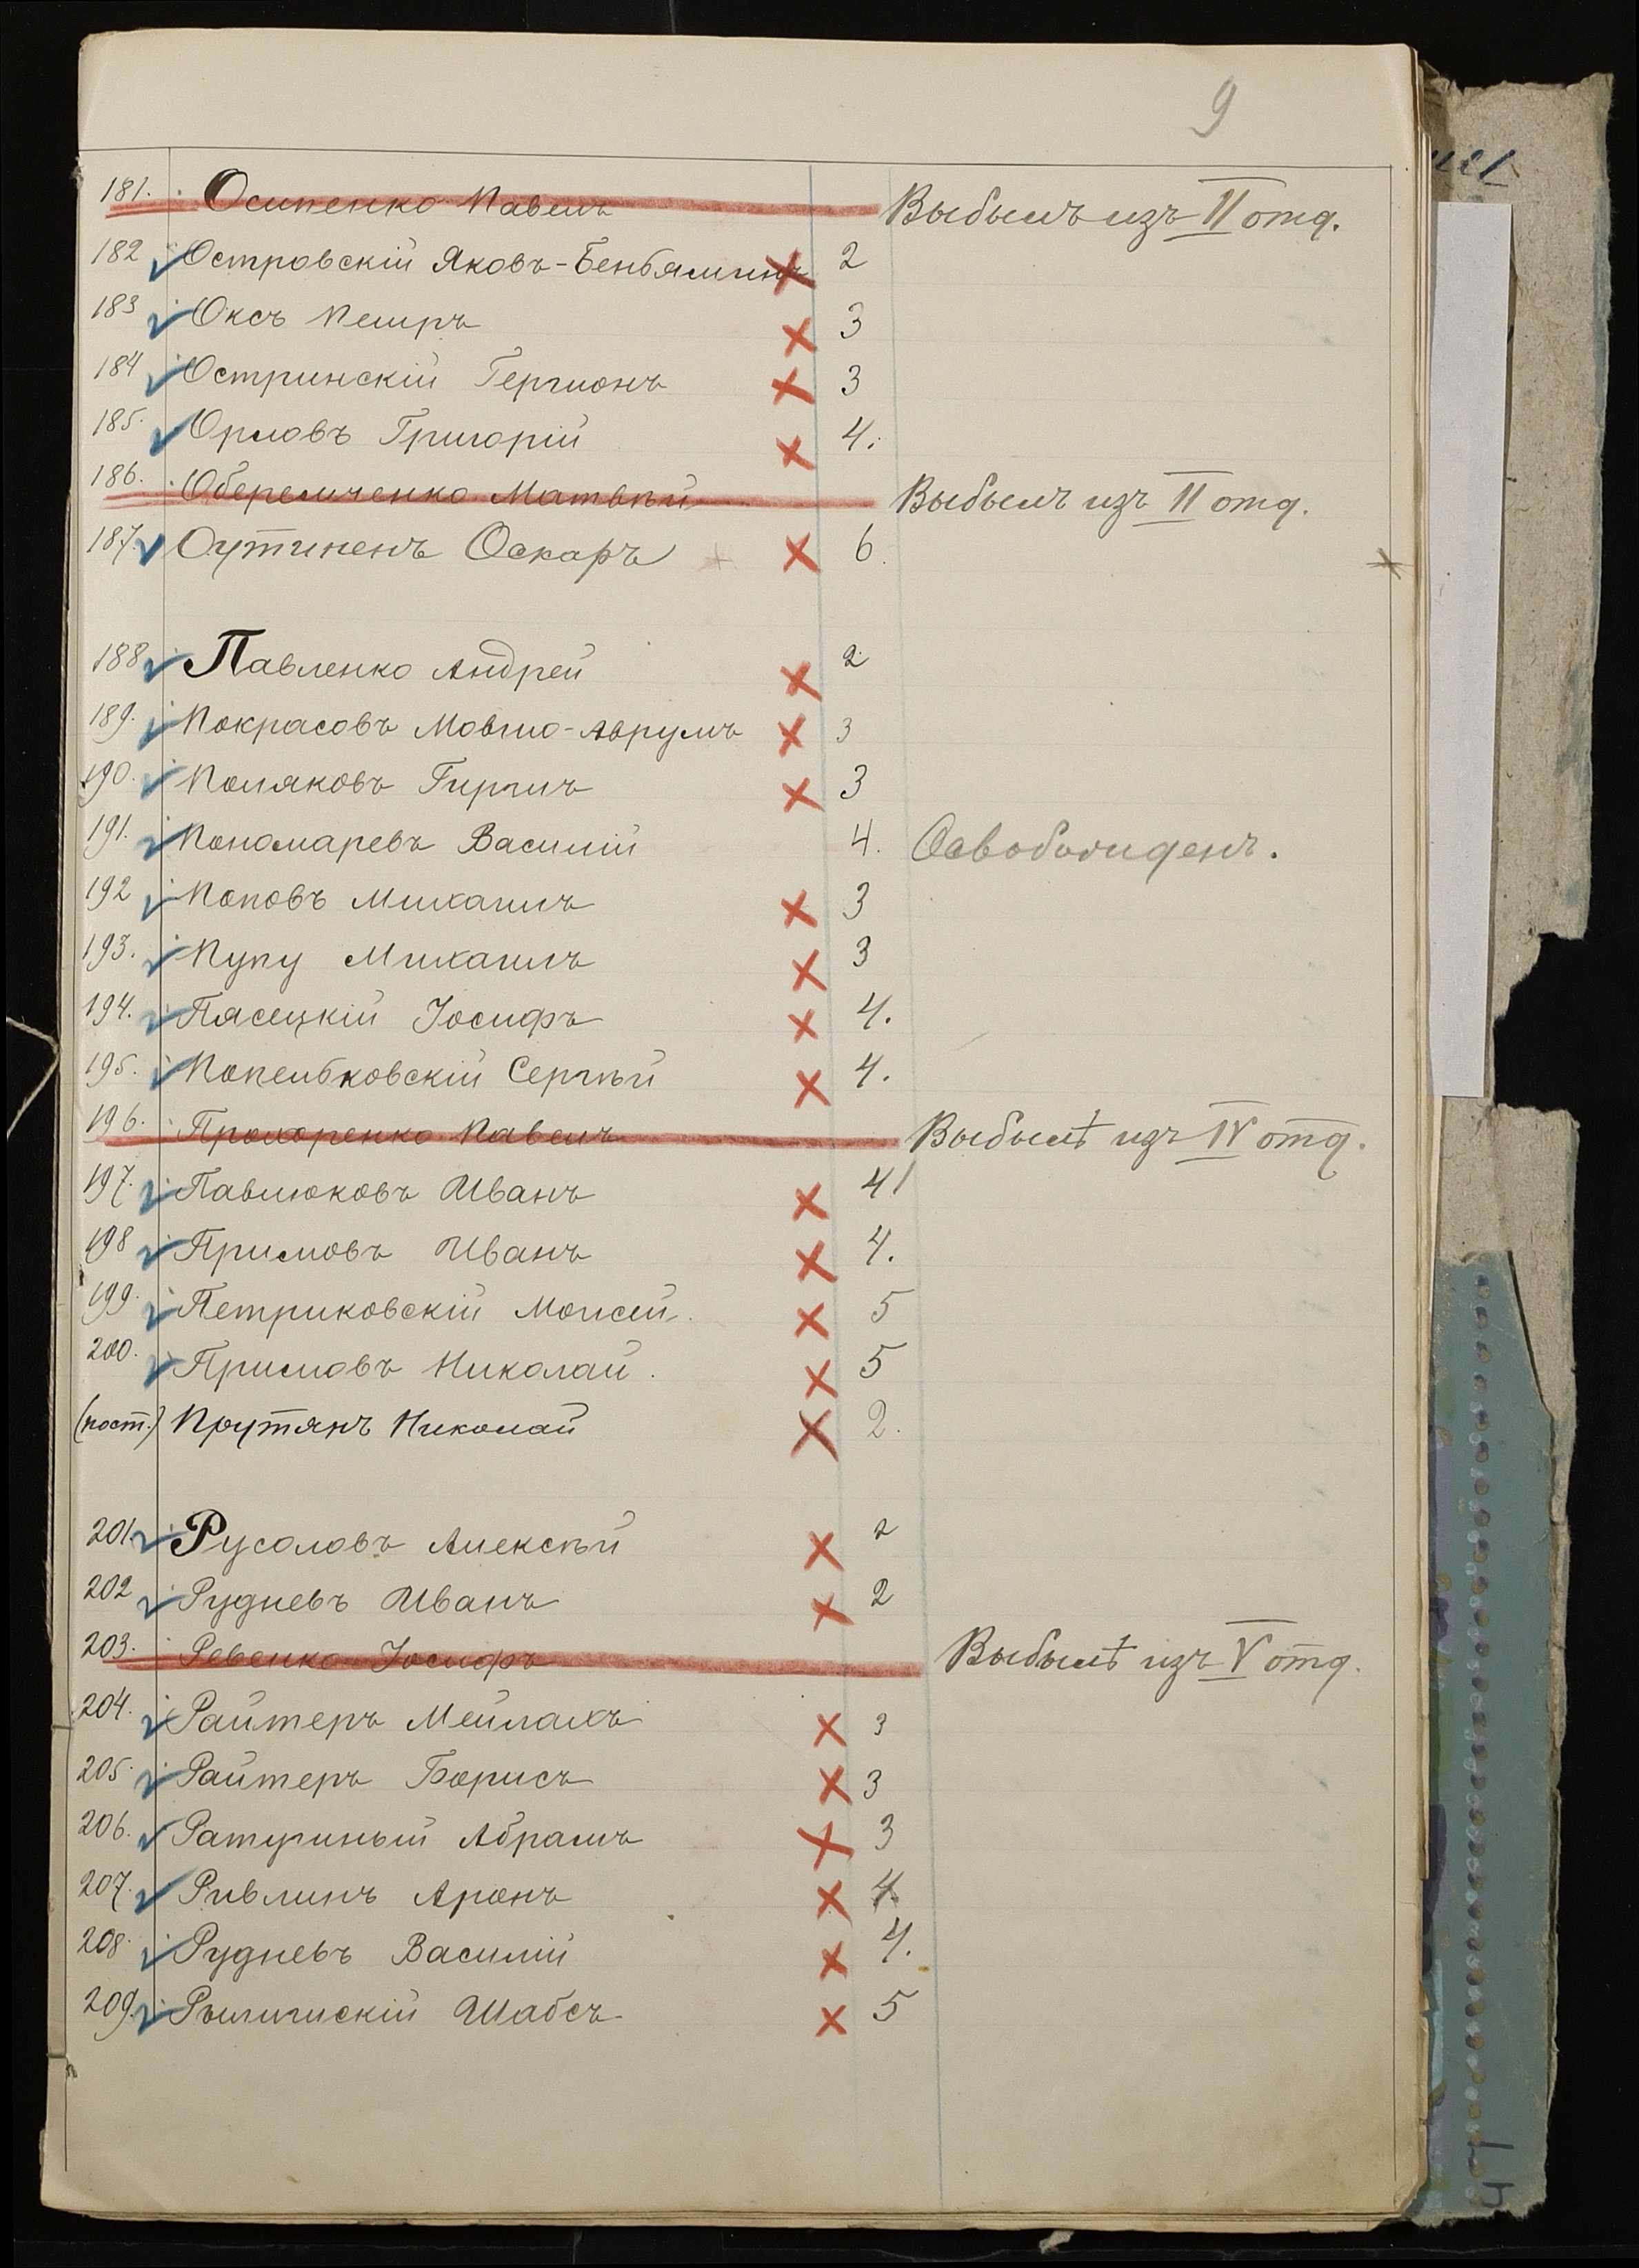 9
181. Осипенко Павелъ Выбылъ изъ II отд.
182 Островскій Яковъ-Беньяминъ 2
183 Оксъ Петръ 3
184 Остринскій Гершонъ 3
185. Орловъ Григорій 4.
186. Оберемченко Матвѣй Выбылъ изъ II отд.
187. Оутиненъ Оскаръ 6.
188. Павленко Андрей 2
189. Покрасовъ Мовшо-Аврумъ 3
190. Поляковъ Гиршъ 3
191. Пономаревъ Василій 4. Освобожденъ.
192 Поповъ Михаилъ 3
193. Пупу Михаилъ 3
194. Пясецкій Іосифъ 4.
195. Попельковскій Сергѣй 4.
196. Прохоренко Павелъ Выбылъ изъ IV отд.
197. Павлюковъ Иванъ 4
198 Примовъ Иванъ 4.
199. Петриковскій Моисей. 5
200. Примовъ Николай. 5
(пост.) Прутянъ Николай 2.
201. Русоловъ Алексѣй 2
202 Рудневъ Иванъ 2
203. Ревенко Іосифъ Выбылъ изъ V отд.
204. Райтеръ Мейлахъ 3
205. Райтеръ Борисъ 3
206. Ратушный Абрамъ 3
207. Ривлинъ Аронъ 4.
208. Рудневъ Василій 4.
209. Шабсъ 5